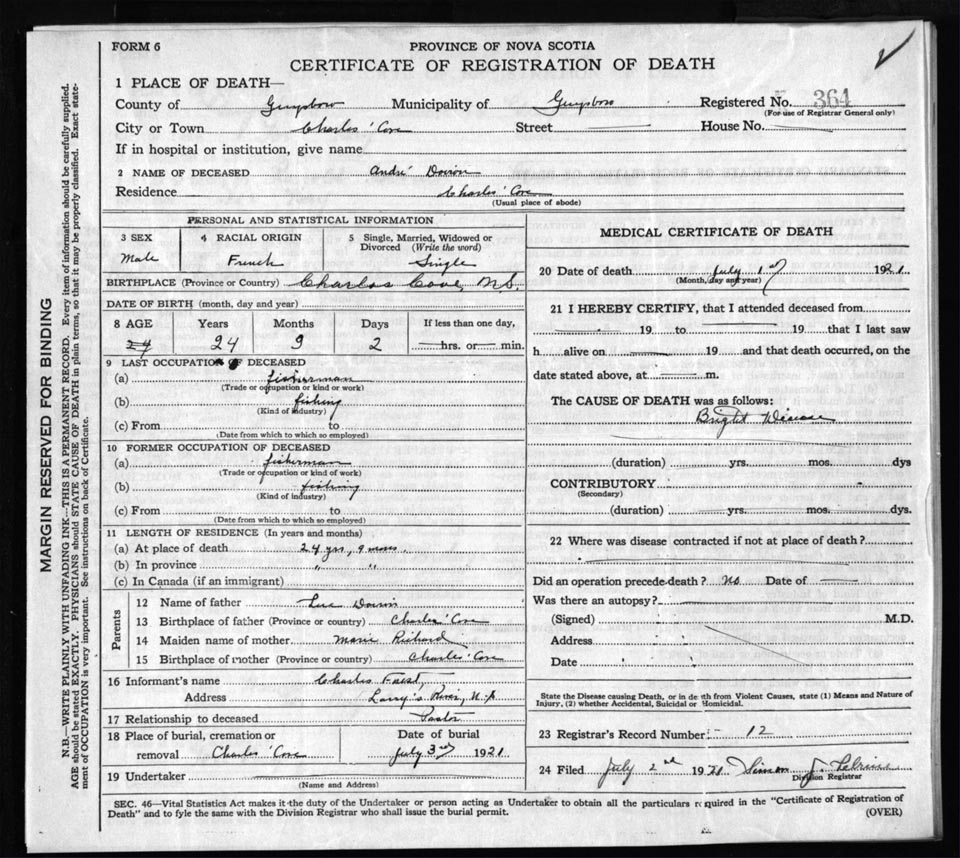 FORM 6
PROVINCE OF NOVA SCOTIA
CERTIFICATE OF REGISTRATION OF DEATH
1 PLACE OF DEATH—
County of Guysboro Municipality of Guysboro Registered No. 364
(For use of Registrar General only)
City or Town Charles' Cove Street House No.
If in hospital or institution, give name
2 NAME OF DECEASED André Doiron
Residence Charles' Cove
(Usual place of abode)
PERSONAL AND STATISTICAL INFORMATION
3 SEX Male
4 RACIAL ORIGIN French
5 Single, Married, Widowed or Divorced (Write the word) Single
BIRTHPLACE (Province or Country) Charles Cove, N.S.
DATE OF BIRTH (month, day and year)
8 AGE Years Months Days If less than one day,
24 24 9 2 hrs. or min.
9 LAST OCCUPATION OF DECEASED
(a) fisherman
(Trade or occupation or kind or work)
(b) fishing
(Kind of industry)
(c) From to
(Date from which to which so employed)
10 FORMER OCCUPATION OF DECEASED
(a) fisherman
(Trade or occupation or kind or work)
(b) fishing
(Kind of industry)
(c) From to
(Date from which to which so employed)
11 LENGTH OF RESIDENCE (In years and months)
(a) At place of death 24 yrs, 9 mos.
(b) In province " "
(c) In Canada (if an immigrant)
Parents
12 Name of father Luc Doiron
13 Birthplace of father (Province or country) Charles' Cove
14 Maiden name of mother Marie Richard
15 Birthplace of mother (Province or country) Charles' Cove
16 Informant's name Charles
Address Larry's River, N.S.
17 Relationship to deceased Pastor
18 Place of burial, cremation or removal Charles' Cove
Date of burial July 3rd 1921
19 Undertaker
(Name and Address)
MEDICAL CERTIFICATE OF DEATH
20 Date of death July 1st 1921
(Month, day and year)
21 I HEREBY CERTIFY, that I attended deceased from
19 to 19 that I last saw
h alive on 19 and that death occurred, on the
date stated above, at m.
The CAUSE OF DEATH was as follows:
Bright Disease
(duration) yrs. mos. dys
CONTRIBUTORY
(Secondary)
(duration) yrs. mos. dys.
22 Where was disease contracted if not at place of death?
Did an operation precede death? No Date of
Was there an autopsy?
(Signed) M.D.
Address
Date
State the Disease causing Death, or in death from Violent Causes, state (1) Means and Nature of
Injury, (2) whether Accidental, Suicidal or Homicidal.
23 Registrar's Record Number:- 12
24 Filed July 2nd 1921 Simon J.
Division Registrar
SEC. 46—Vital Statistics Act makes it the duty of the Undertaker or person acting as Undertaker to obtain all the particulars required in the "Certificate of Registration of
Death" and to fyle the same with the Division Registrar who shall issue the burial permit. (OVER)
MARGIN RESERVED FOR BINDING
N.B.—WRITE PLAINLY WITH UNFADING INK—THIS IS A PERMANENT RECORD. Every item of information should be carefully supplied.
AGE should be stated EXACTLY. PHYSICIANS should STATE CAUSE OF DEATH in plain terms, so that it may be properly classified. Exact state-
ment of OCCUPATION is very important. See instructions on back of Certificate.